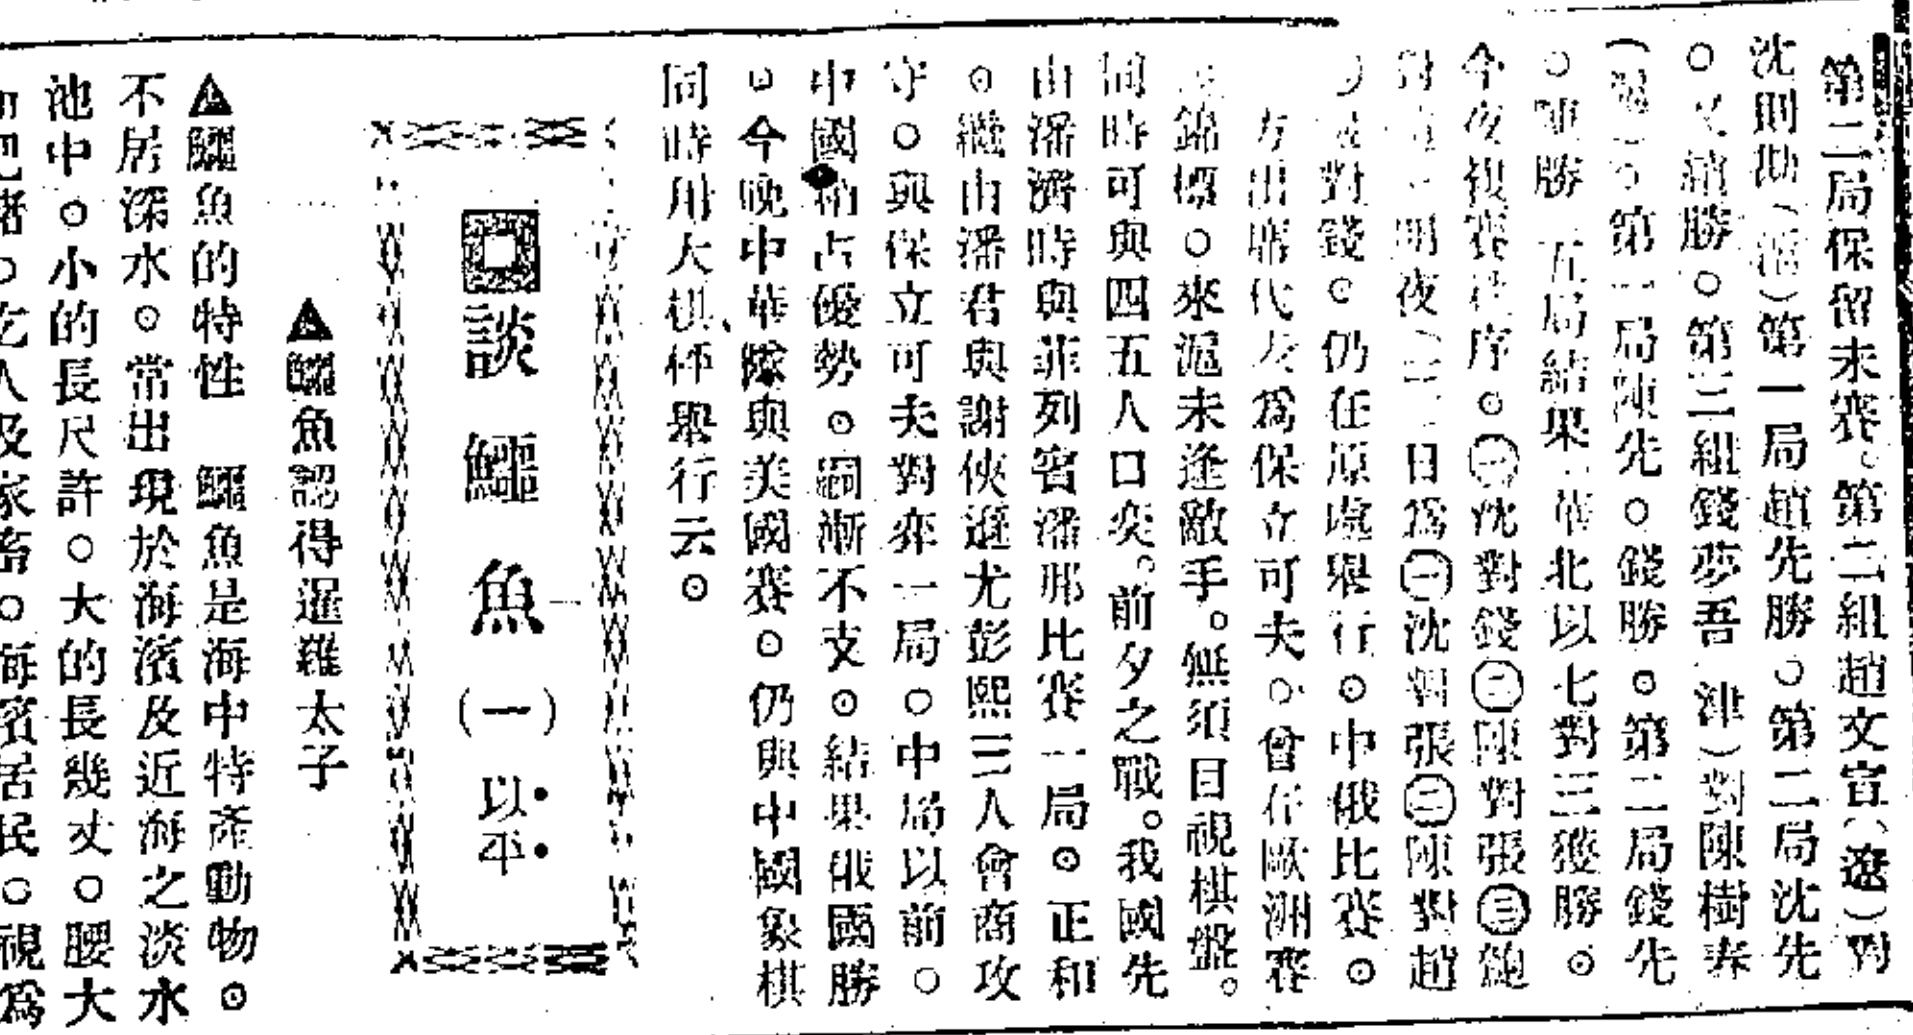 第二局保留未賽。第二組趙文宣（遼）對
沈則勘（滬）第一局趙先勝。第二局沈先
。又續勝。第三組錢夢吾　津）對陳樹春
。第一局陳先。錢勝。第二局錢先
。陳勝　五局結果　華北以七對三獲勝。
今夜複賽程序。㊀沈對錢㊁陳對張㊂
明夜（二　日爲㊀沈對張㊁陳對趙
對錢。仍在原處舉行。中俄比賽。
方出席代表爲保立可夫。曾在歐洲賽
錦標。來滬未逢敵手。無須目視棋盤。
同時可與四五人口奕。前夕之戰。我國先
由潘濟時與菲列賓潘那比賽一局。正和
。繼由潘君與謝俠遜尤彭熙三人會商攻
守。與保立可夫對弈一局。中局以前。
中國稍占優勢。嗣漸不支。結果俄國勝
。今晚中華隊與美國賽。仍與中國象棋
同時用大棋枰舉行云。
談鱷魚（一）以平
▲鱷魚認得暹羅太子
▲鱷魚的特性　鱷魚是海中特產動物。
不居深水。常出現於海濱及近海之淡水
池中。小的長尺許。大的長幾丈。腰大
豬。吃人及家畜。海濱居民。視爲